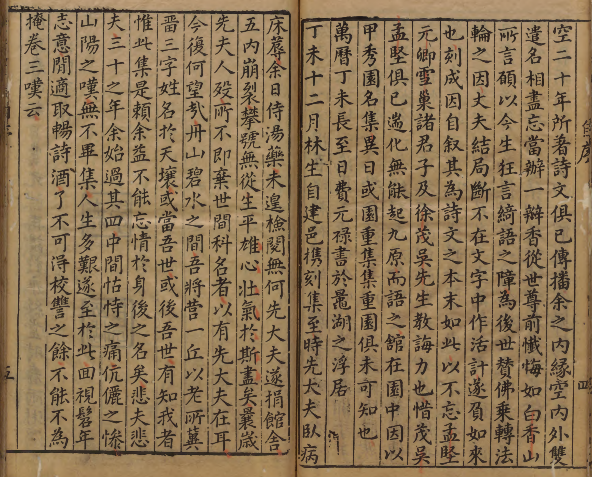 空二十年所著詩文俱已傳播余之内緣空内外雙
遣名相盡忘當辦一瓣香從世尊前懺悔如白香山
所言碩以今生狂言綺語之障為後世賛佛乗轉法
輪之因丈夫結局斷不在文字中作活計遂負如來
也刻成因自叙其為詩文之本末如此以不忘孟堅
元卿雪巢諸君子及徐茂吳先生教誨力也惜茂吳
孟堅俱已遄化無能起九原而語之館在園中因以
甲秀園名集異日或園重集集重園俱未可知也
萬曆丁未長至日費元禄書於鼂湖之浮居
丁未十二月林生自建邑携刻集至時先大夫臥病
床蓐余日侍湯藥未遑檢閲無何先大夫遂捐館舎
五内崩裂攀號無從生平雄心壮氣於斯盡矣曩嵗
先夫人殁所不即棄世間科名者以有先大夫在耳
今復何望㢤丹山碧水之間吾將營一丘以老所冀
畱三字姓名於天壤或當吾世或後吾世有知我者
惟此集是賴余益不能忘情於身後之名矣悲夫悲
夫三十之年余始過其四中間怙恃之痛伉儷之惨
山陽之嘆無不畢集人生多艱遂至於此回視髫年
志意閒適取暢詩酒了不可淂校讐之餘不能不為
掩卷三嘆云
四
五